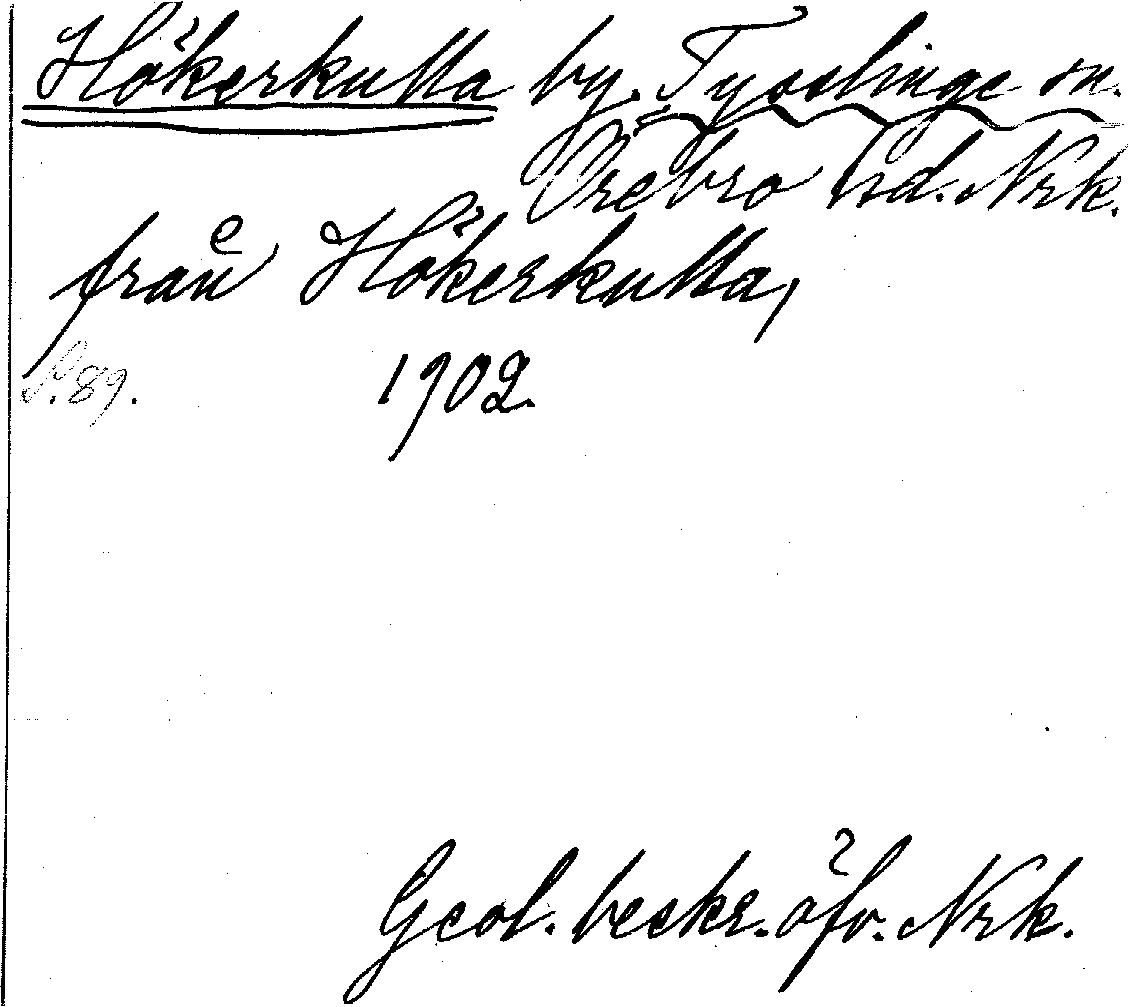 Hökerkulla by, Tysslinge sn.
Örebro hd. Nrk.
från Hökerkulla,
S. 89. 1902.
Geol. beskr. öfv. Nrk.